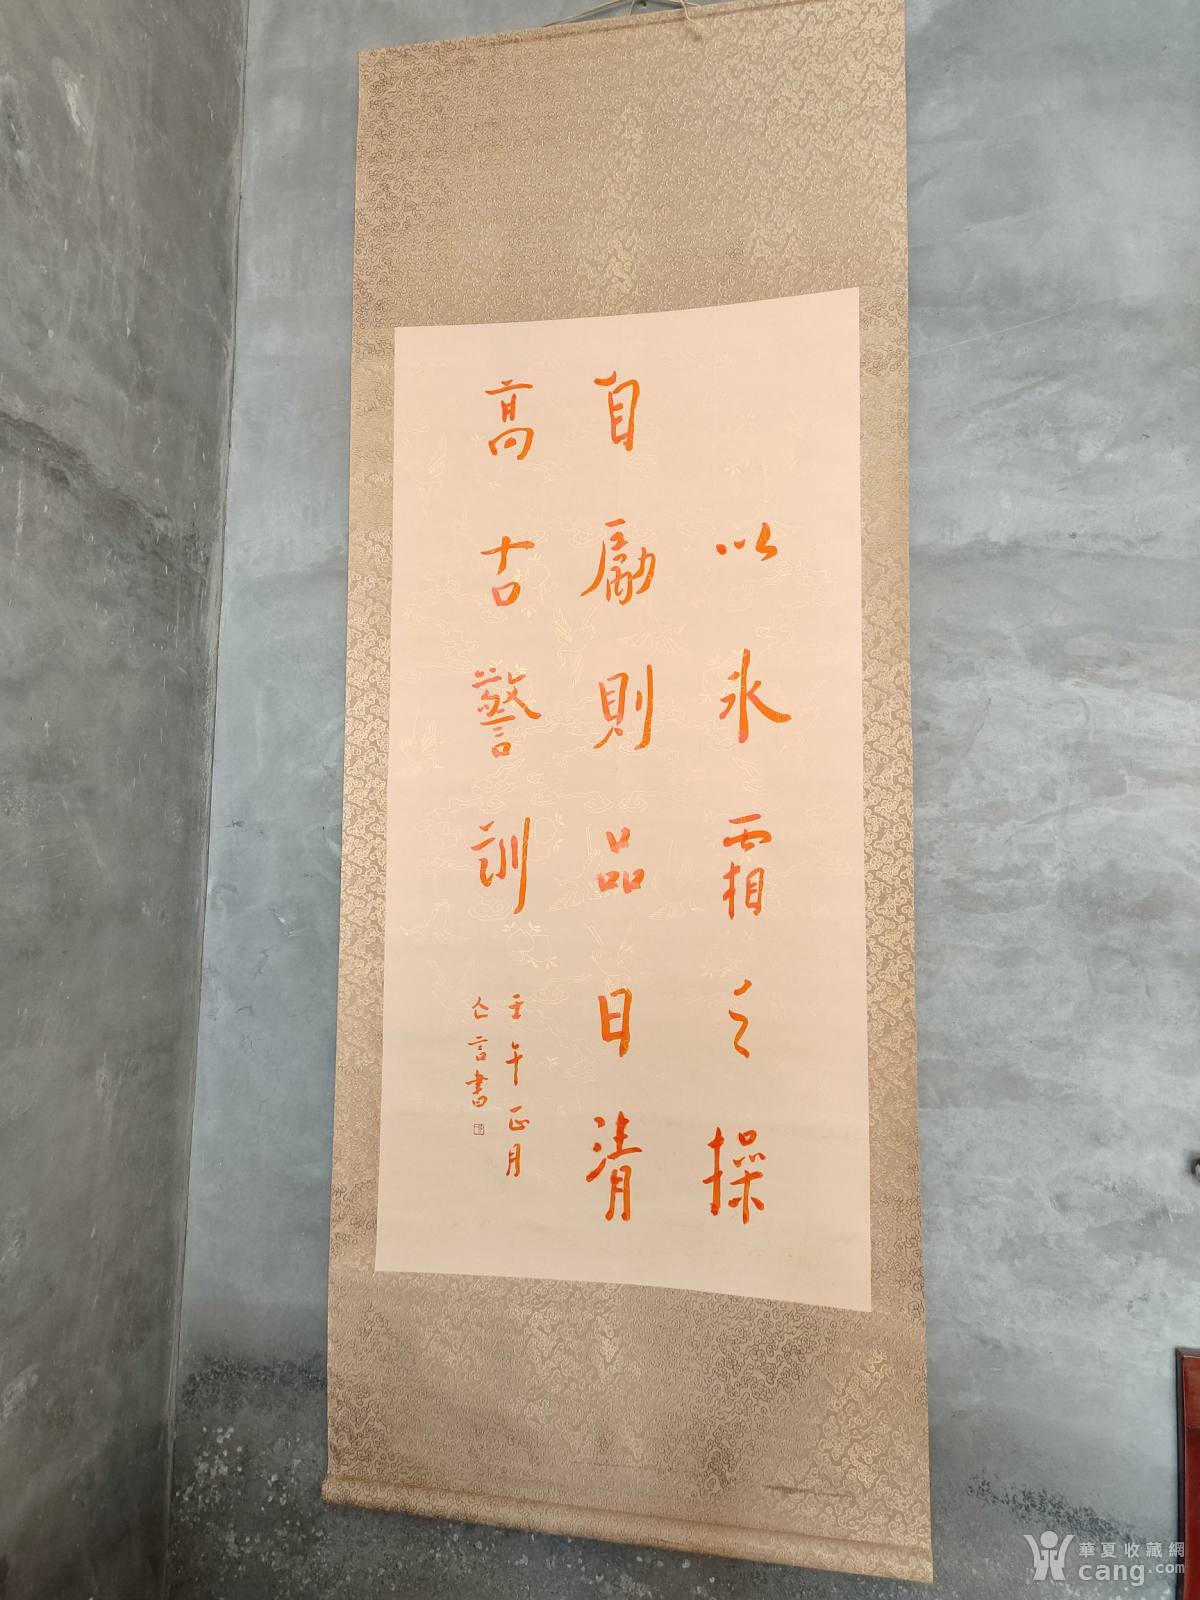 以冰霜之操
自勵則品日清
高古警訓
壬午正月
仌言書
華夏收藏網
cang.com